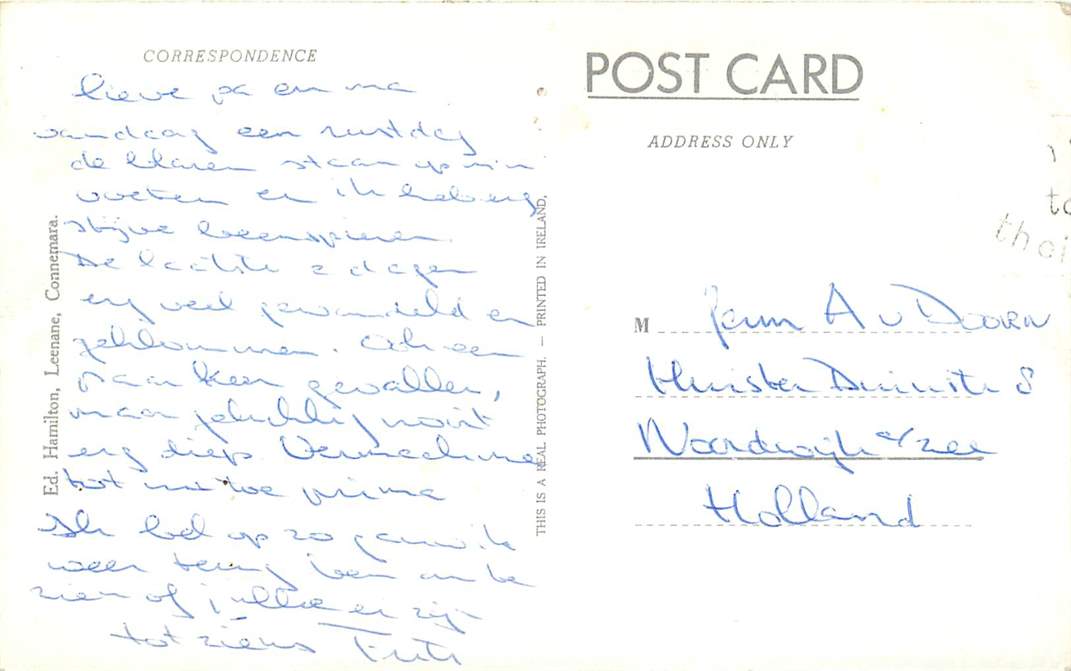 CORRESPONDENCE
lieve pa en ma
vandaag een rustdag
de blaren staan op mijn
voeten en ik heb erg
stijve beenspieren.
De laatste 2 dagen
erg veel gewandeld en
geklommen. Ook een
paar keer gevallen,
maar gelukkig nooit
erg diep.
tot nu toe prima
Ik bel op zo gauw ik
weer terug ben om te
zien of jullie er zijn
tot ziens
Ed. Hamilton, Leenane, Connemara.
THIS IS A REAL PHOTOGRAPH. — PRINTED IN IRELAND.
POST CARD
ADDRESS ONLY
to
thei
M Fam A v DOORN
Noordwijk a/zee
Holland